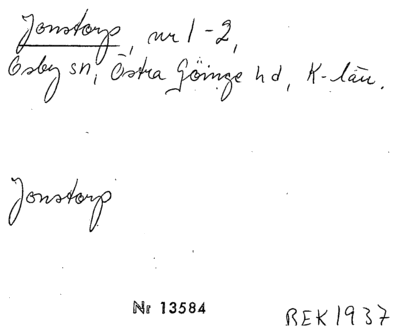 Jonstorp, nr 1-2,
Osby sn, Östra Göinge hd, K-län.
Jonstorp
Nr 13584
REK 1937